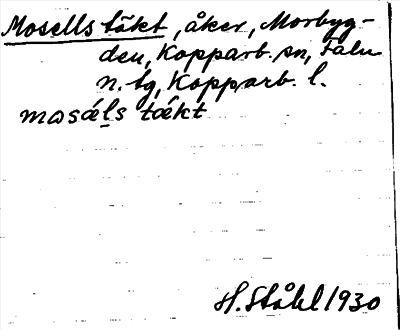 Mosells täkt, åker, Morbyg-
den, Kopparb. sn, Falu
n. tg, Kopparb. l.
mωsǽl̥s tǽkt
H. Ståhl 1930